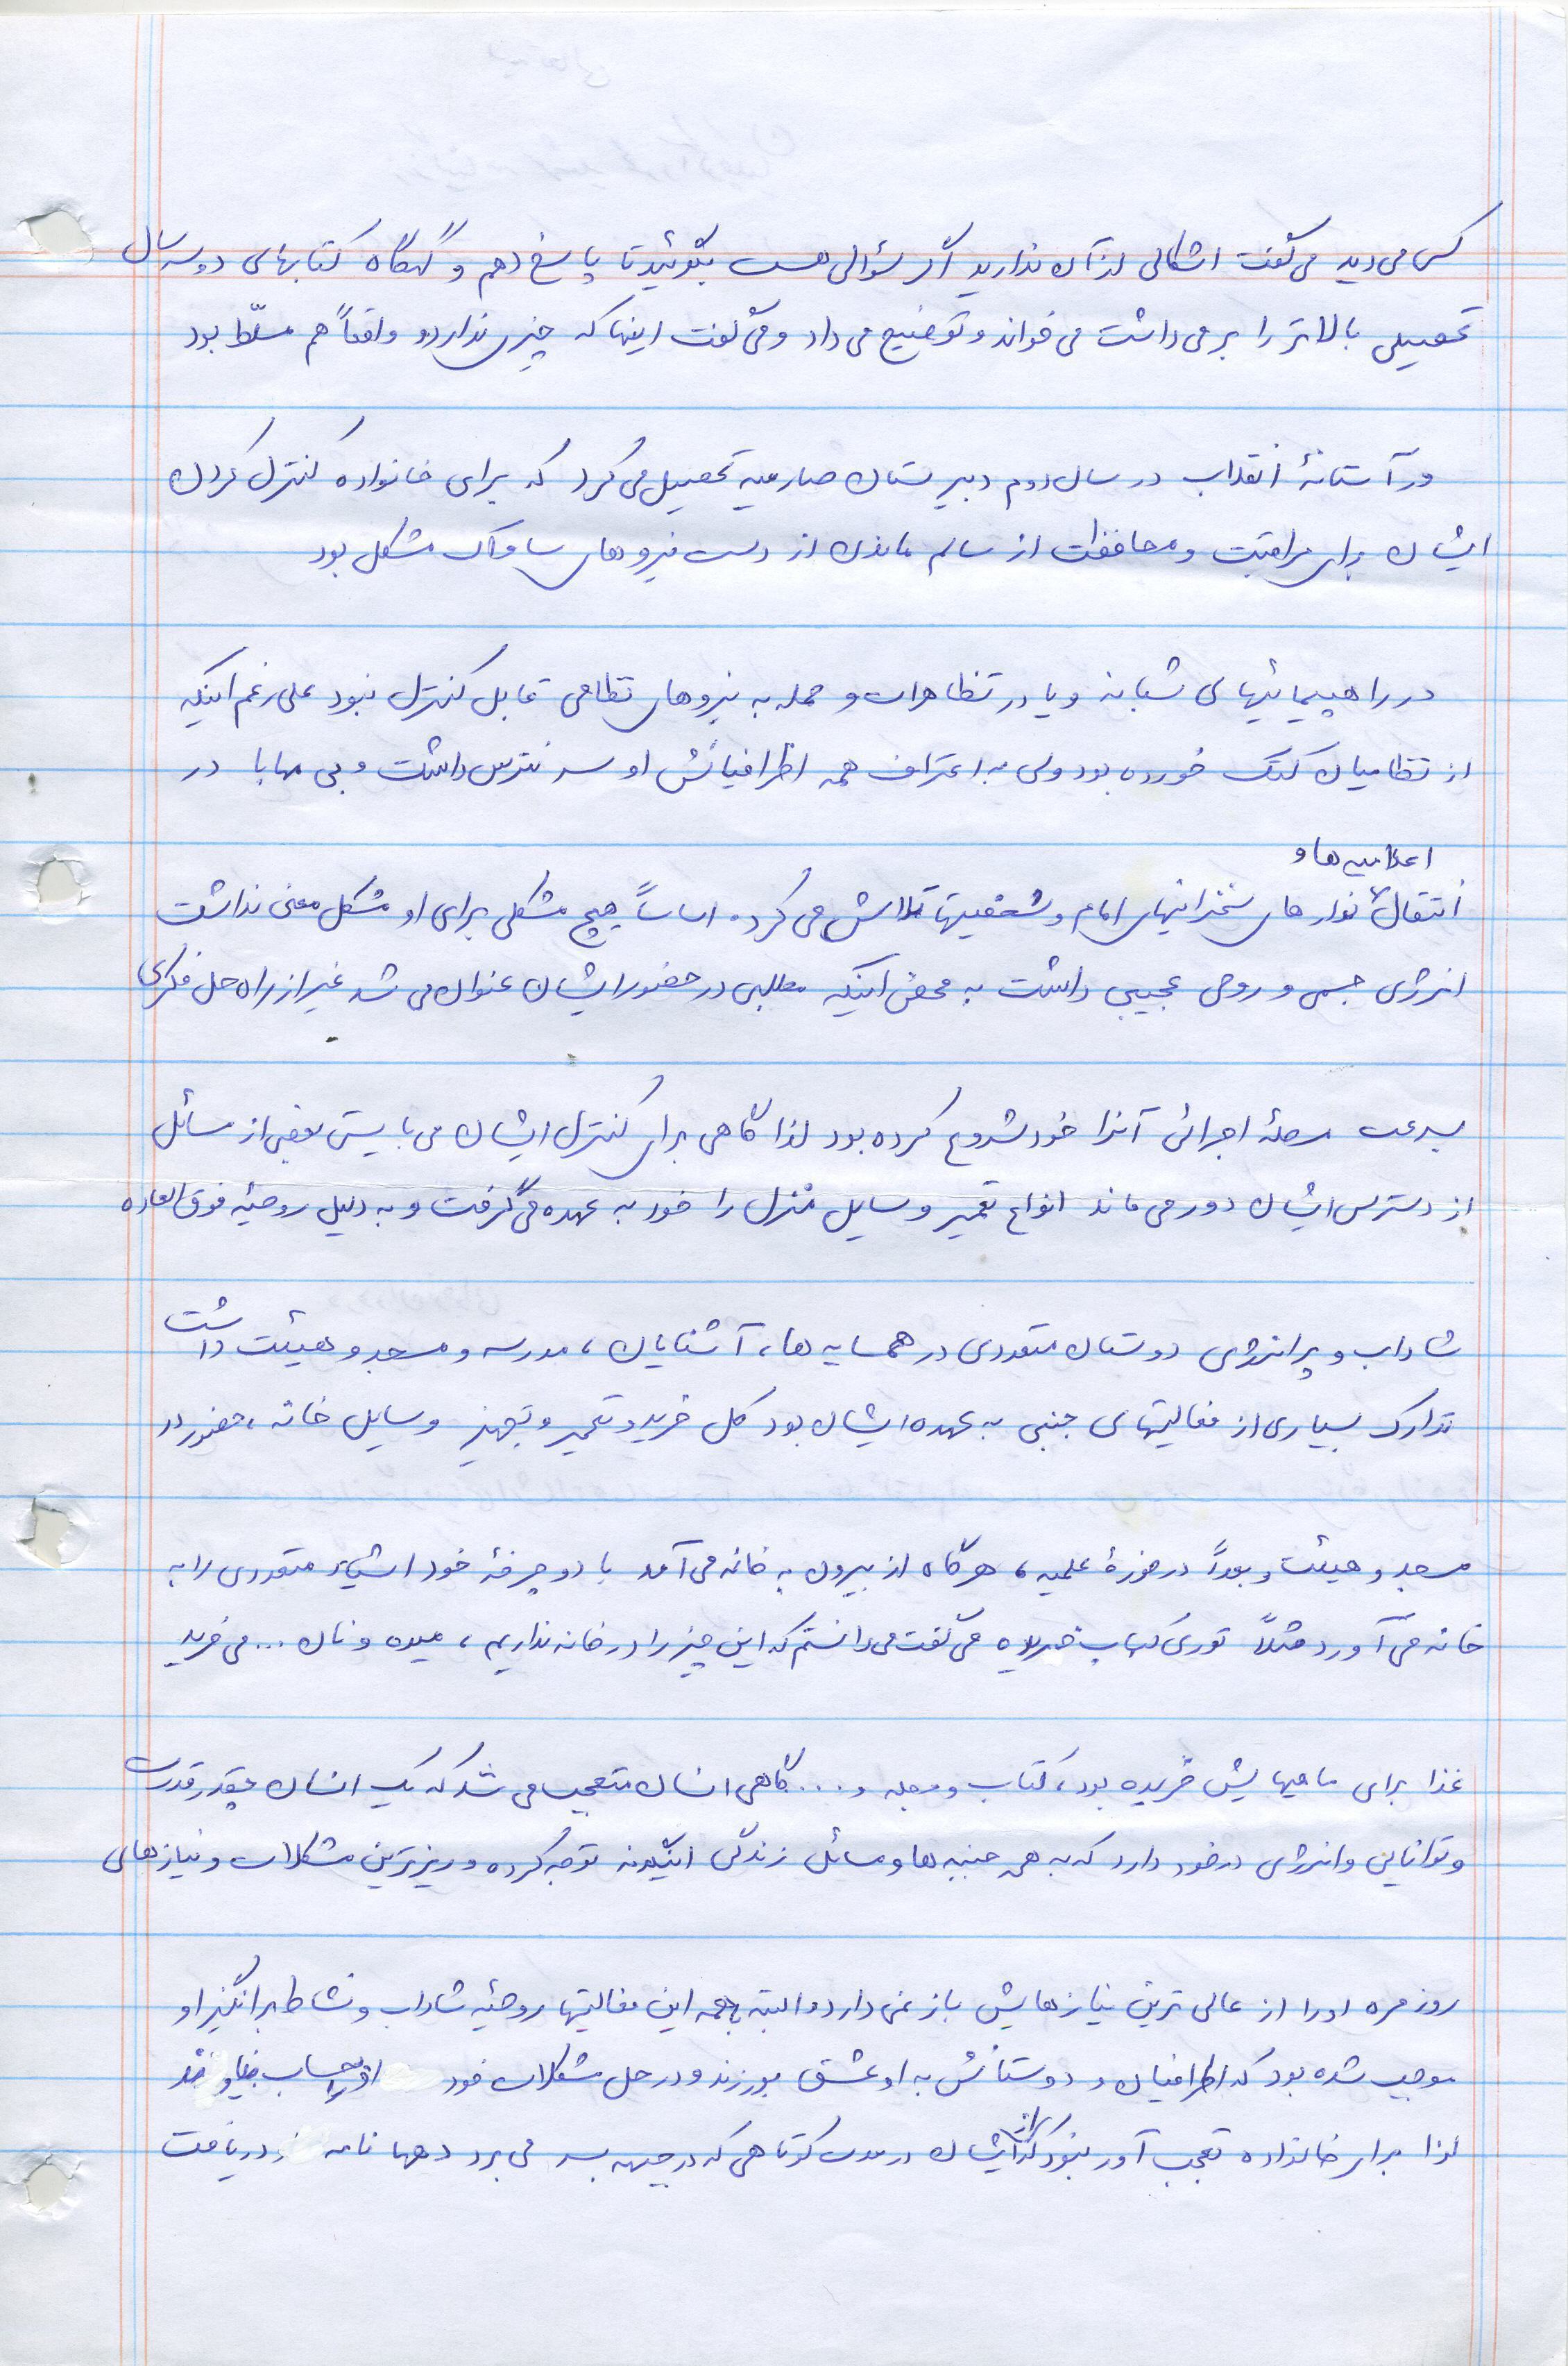 کس می دید می گفت اشکالی لذتان ندارید اگر سؤالی هست بگوئید تا پاسخ دهم و گهگاه کتابهای دو سه سال
تحصیلی بالاتر را بر می داشت می خواند و توضیح می داد و می گفت اینها که چیزی ندارد و واقعاً هم مسلّط بود
در آستانهٔ انقلاب در سال دوم دبیرستان صارمیه تحصیل می کرد که برای خانواده کنترل کردن
ایشان برای مراقبت و محافظت از سالم ماندن از دست نیروهای ساواک مشکل بود
در راهپیمائیهای شبانه و یا در تظاهرات و حمله به نیروهای نظامی قابل کنترل نبود علی رغم اینکه
از نظامیان کتک خورده بود ولی به اعتراف همه اطرافیانش او سر نترس داشت و بی مهابا در
اعلامیه ها و
انتقال نوارهای سخنرانیهای امام و شخصیتها تلاش می کرد. اساساً هیچ مشکلی برای او مشکل معنی نداشت
انرژی جسمی و روحی عجیبی داشت به محض اینکه مطلبی در حضور ایشان عنوان می شد غیر از راه حل فکری
بسرعت مرحلهٔ اجرائی آنرا خود شروع کرده بود لذا گاهی برای کنترل ایشان می بایستی بعضی از مسائل
از دسترس ایشان دور می ماند انواع تعمیر وسایل منزل را خود به عهده می گرفت و به دلیل روحیهٔ فوق العاده
شاداب و پر انرژی دوستان متعددی در همسایه ها، آشنایان، مدرسه و مسجد و هیئت داشت
تدارک بسیاری از فعالیتهای جنبی به عهده ایشان بود کل خرید و تعمیر و تجهیز وسایل خانه، حضور در
مسجد و هیئت و بعداً در حوزهٔ علمیه، هرگاه از بیرون به خانه می آمد با دوچرخهٔ خود اشیاء متعددی را به
خانه می آورد مثلاً توری کباب خریده می گفت می دانستم که این چیز را در خانه نداریم، میوه و نان ... می خرید
غذا برای ماهیهایش خریده بود، کتاب و مجله و .... گاهی انسان متعجب می شد که یک انسان چقدر قدرت
و توانایی و انرژی در خود دارد که به همه جنبه ها و مسائل زندگی اینگونه توجه کرده و ریزترین مشکلات و نیازهای
روزمره او را از عالی ترین نیازهایش باز نمی دارد و البته با همه این فعالیتها روحیهٔ شاداب و نشاط برانگیز او
موجب شده بود که اطرافیان و دوستانش به او عشق بورزند و در حل مشکلات خود او را بحساب بیاورند
لذا برای خانواده تعجب آور نبود که از ایشان در مدت کوتاهی که در جبهه بسر می برد دهها نامه دریافت